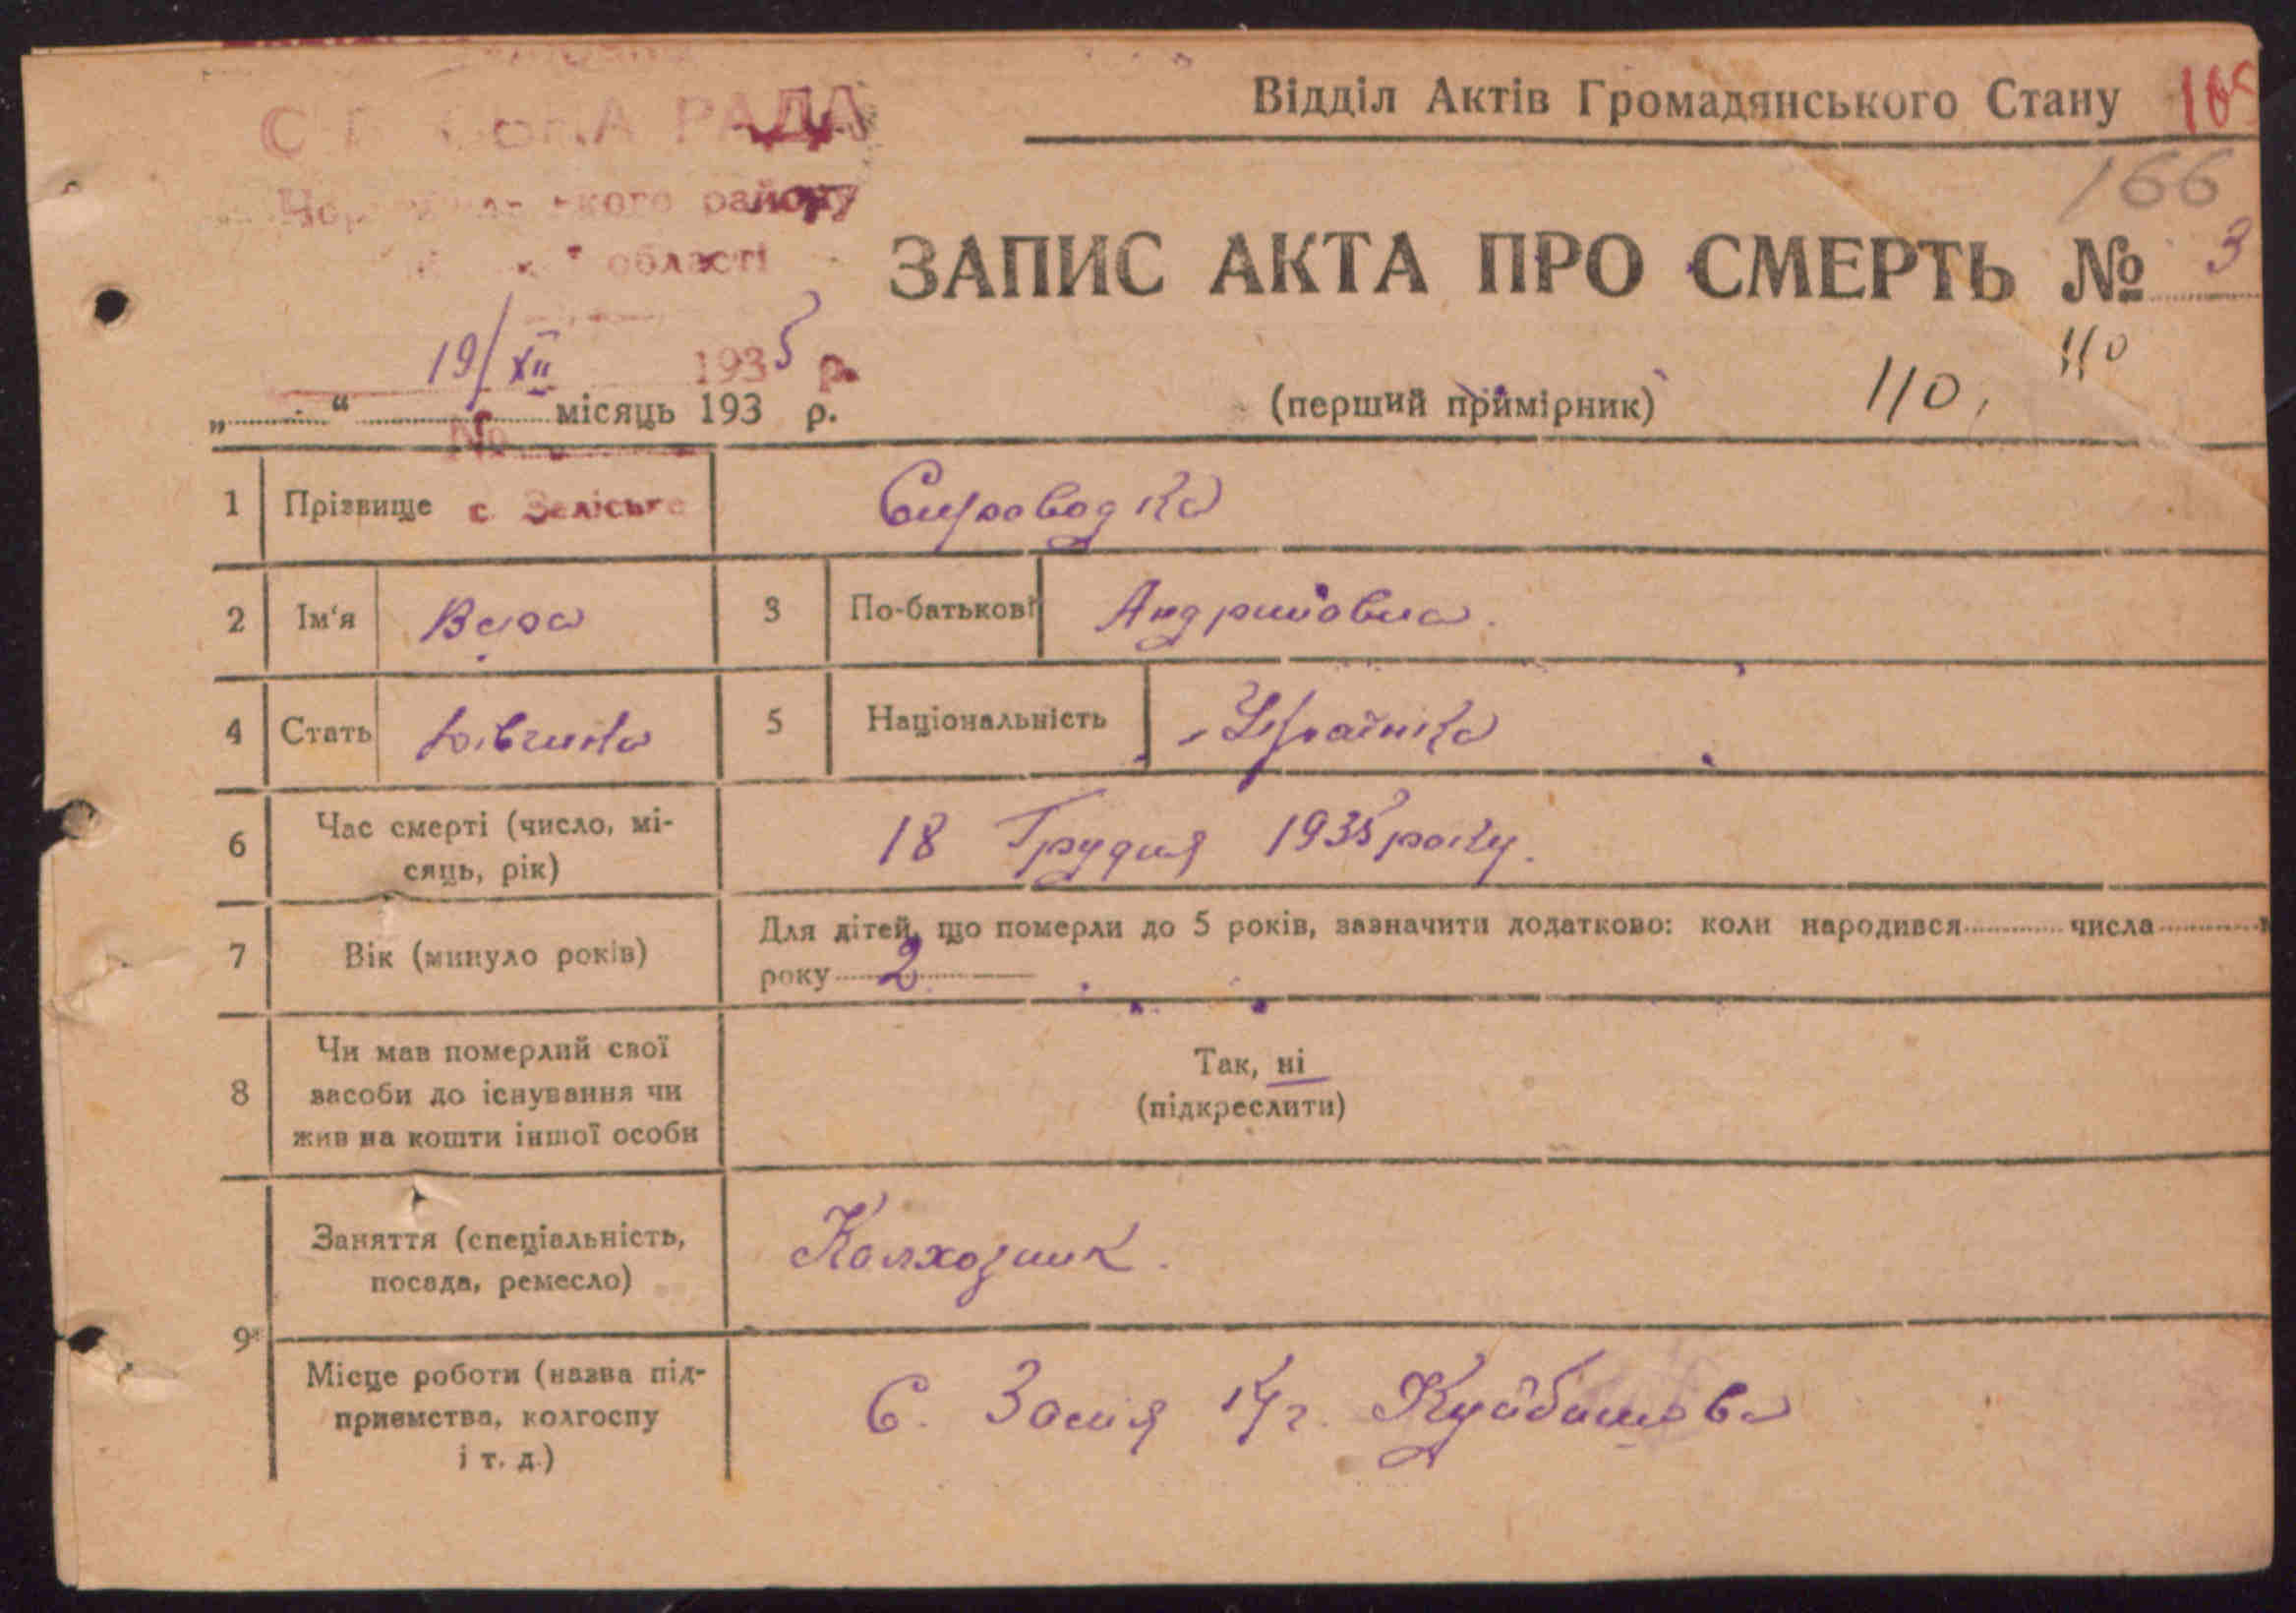 Відділ Актів Громадянського Стану
166
РАДА
району
області
ЗАПИС АКТА ПРО СМЕРТЬ № 3
19/XII 1935 р.
110
„ “ місяць 193 р.
(перший примірник) 110,
№
1 Прізвище с. Заліське Сироводка
2 Ім'я Вера 3 По-батькові Андриівна.
4 Стать Дівчина 5 Національність Українка
6 Час смерті (число, мі-
сяць, рік) 18 Грудня 1935 року.
7 Вік (минуло років) Для дітей, що померли до 5 років, зазначити додатково: коли народився числа
року 2
8 Чи мав померлий свої
засоби до існування чи
жив на кошти іншої особи
Так, ні
(підкреслити)
9 Заняття (спеціальність,
посада, ремесло) Колхозник.
Місце роботи (назва під-
приємства, колгоспу
і т. д.)
С. к/г. Куйбишева